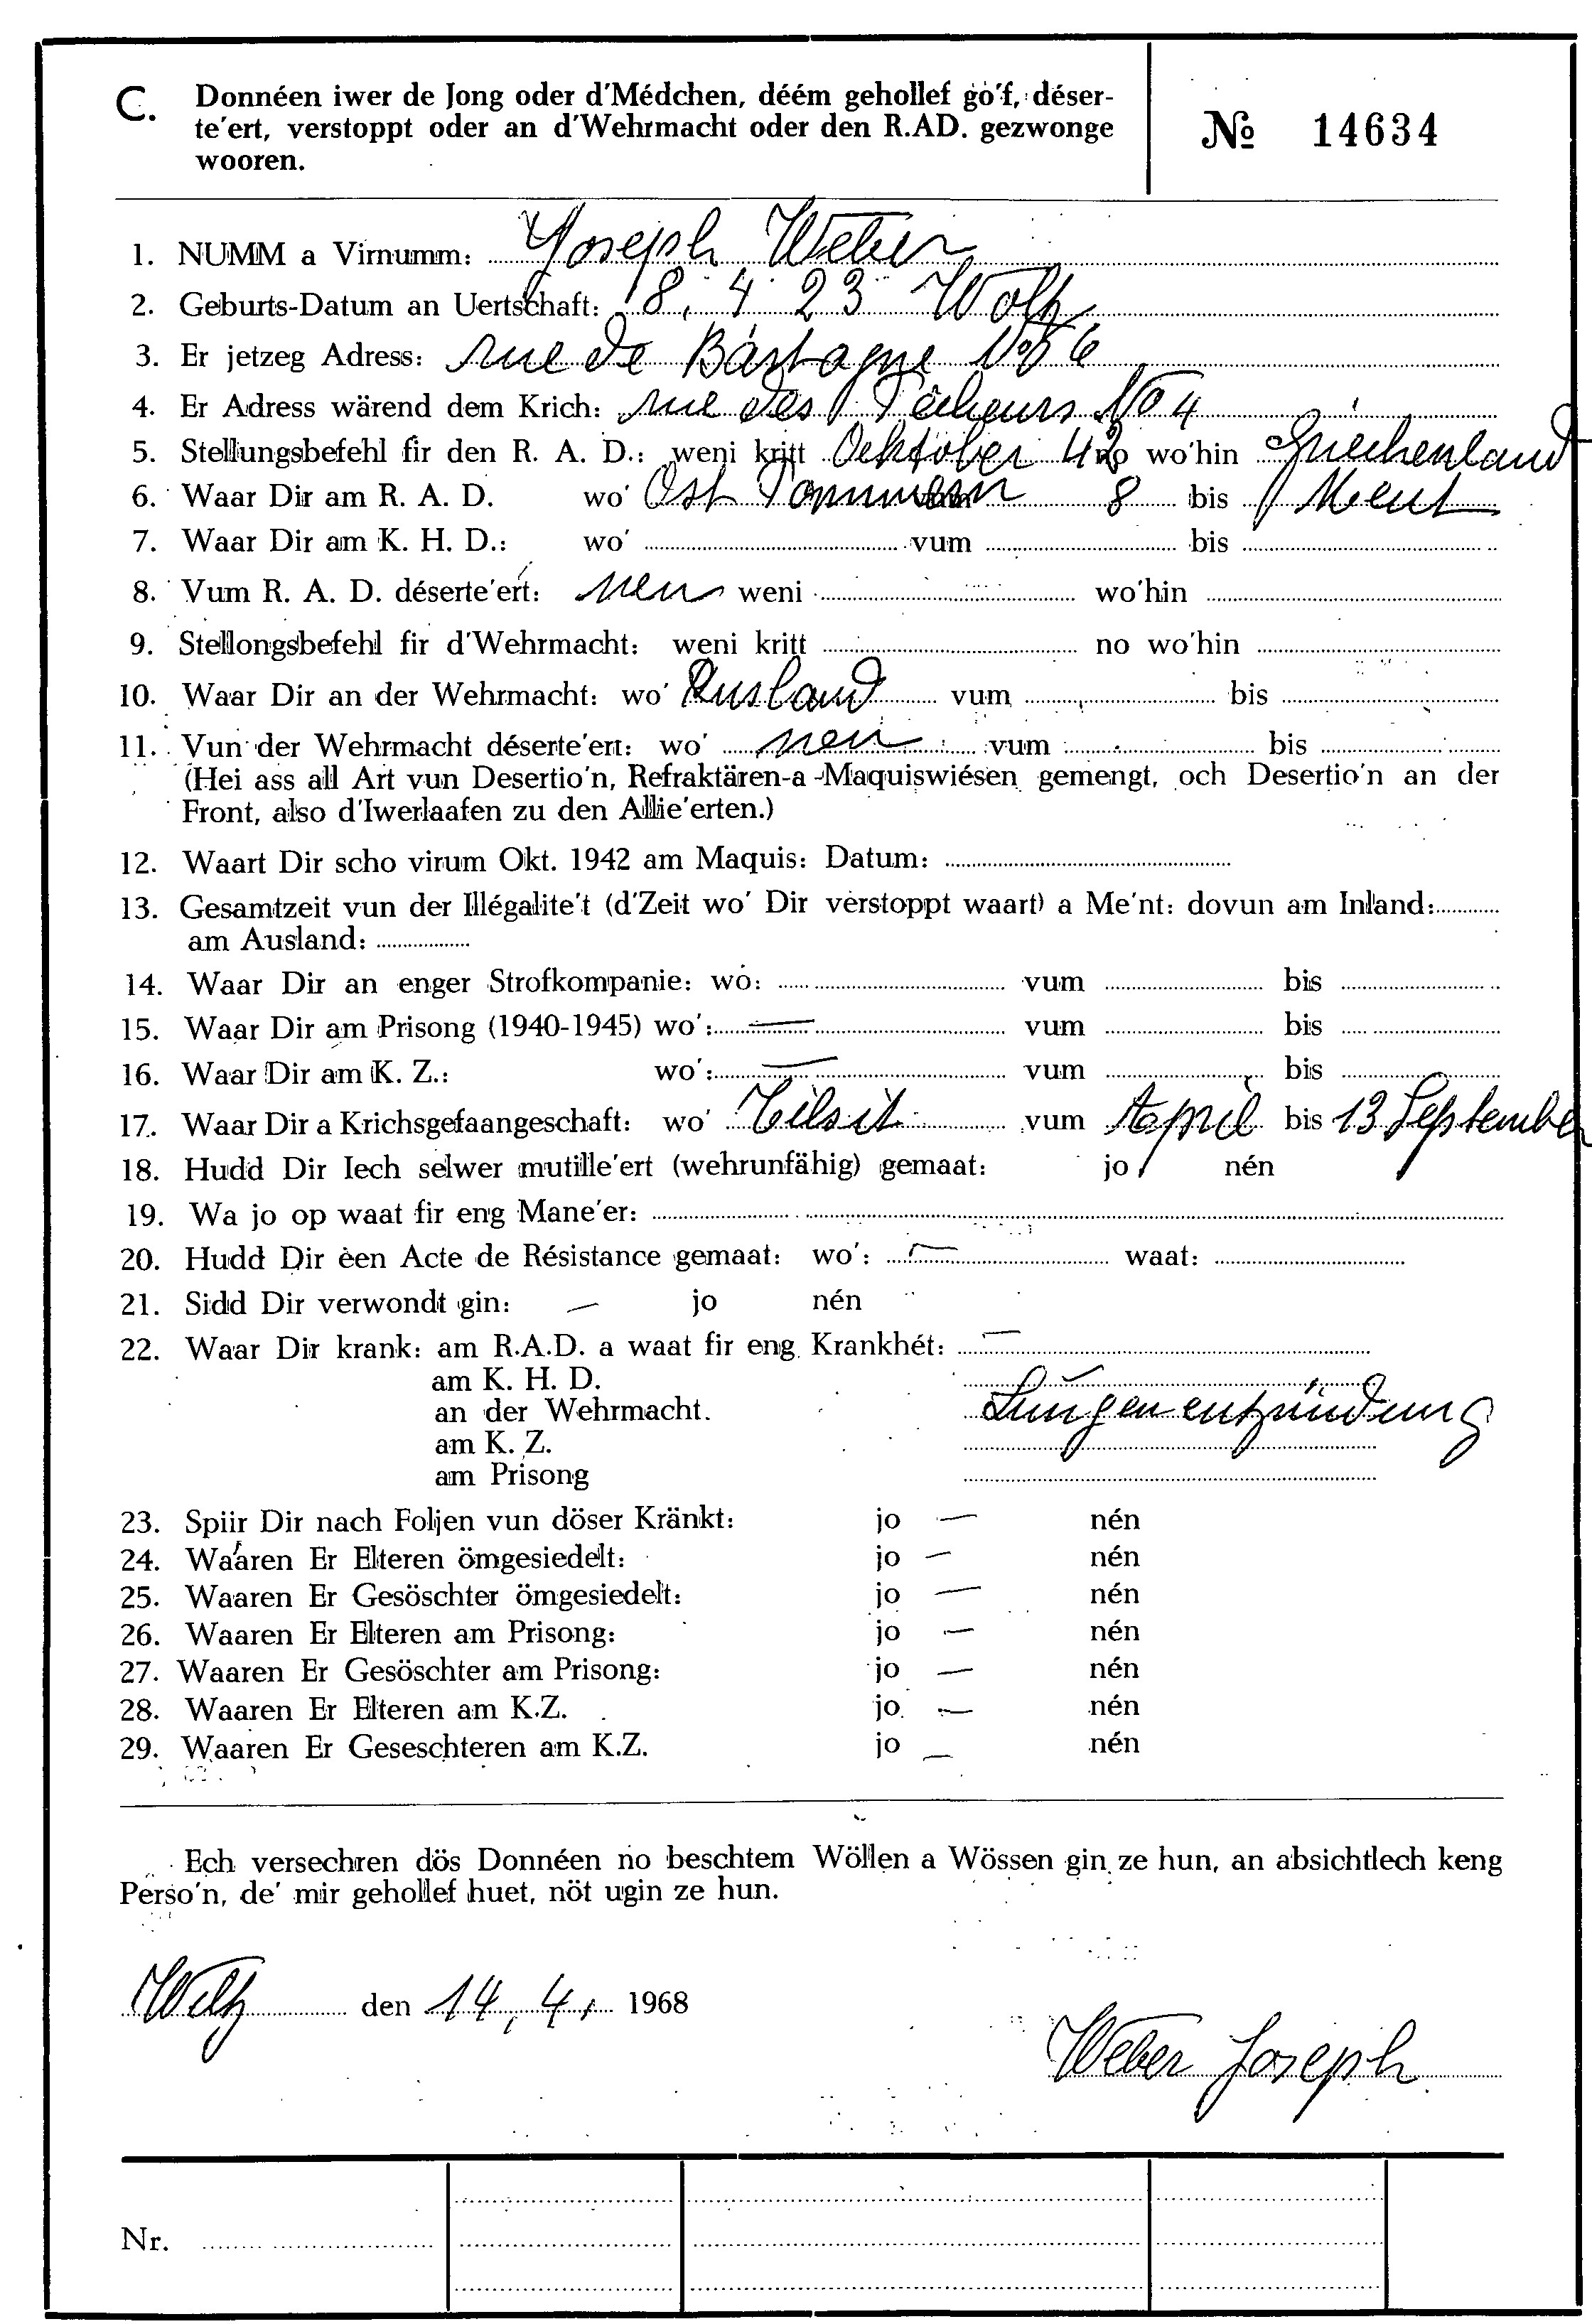 C. Donnéen iwer de Jong oder d'Médchen, déém gehollef go'f, déser-
te'ert, verstoppt oder an d'Wehrmacht oder den R.AD. gezwonge
wooren.
№ 14634
1. NUMM a Virnumm: Joseph Weber
2. Geburts-Datum an Uertschaft: 8. 4 23 Woltz
3. Er jetzeg Adress: rue de Bastogne No
4. Er Adress wärend dem Krich: rue des Pêcheurs No 4
5. Stellungsbefehl fir den R. A. D.: weni kritt Oektober 42 no wo'hin Griechenland
6. Waar Dir am R. A. D. wo' Ost Pommern vum 8 bis
7. Waar Dir am K. H. D.: wo' vum bis
8. Vum R. A. D. déserte'ert: nen weni wo'hin
9. Stellongsbefehl fir d'Wehrmacht: weni kritt no wo'hin
10. Waar Dir an der Wehrmacht: wo' Rusland vum bis
11. Vun der Wehrmacht déserte'ert: wo' nen vum bis
(Hei ass all Art vun Desertio'n, Refraktären-a-Maquiswiésen gemengt, och Desertio'n an der
Front, also d'Iwerlaafen zu den Allie'erten.)
12. Waart Dir scho virum Okt. 1942 am Maquis: Datum:
13. Gesamtzeit vun der Illégalite't (d'Zeit wo' Dir verstoppt waart) a Me'nt: dovun am Inland:
am Ausland:
14. Waar Dir an enger Strofkompanie: wo: vum bis
15. Waar Dir am Prisong (1940-1945) wo': — vum bis
16. Waar Dir am K. Z.: wo': — vum bis
17. Waar Dir a Krichsgefaangeschaft: wo' Tilsit vum April bis 13 September
18. Hudd Dir Iech selwer mutille'ert (wehrunfähig) gemaat: jo nén
19. Wa jo op waat fir eng Mane'er:
20. Hudd Dir èen Acte de Résistance gemaat: wo': — waat:
21. Sidd Dir verwondt gin: — jo nén
22. Waar Dir krank: am R.A.D. a waat fir eng Krankhét: —
am K. H. D.
an der Wehrmacht. Lungenentzündung
am K. Z.
am Prisong
23. Spiir Dir nach Foljen vun döser Kränkt: jo — nén
24. Waaren Er Elteren ömgesiedelt: jo — nén
25. Waaren Er Gesöschter ömgesiedelt: jo — nén
26. Waaren Er Elteren am Prisong: jo — nén
27. Waaren Er Gesöschter am Prisong: jo — nén
28. Waaren Er Elteren am K.Z. jo — nén
29. Waaren Er Geseschteren am K.Z. jo — nén
Ech versechren dös Donnéen no beschtem Wöllen a Wössen gin ze hun, an absichtlech keng
Perso'n, de' mir gehollef huet, nöt ugin ze hun.
Wiltz den 14. 4. 1968
Weber Joseph
Nr.